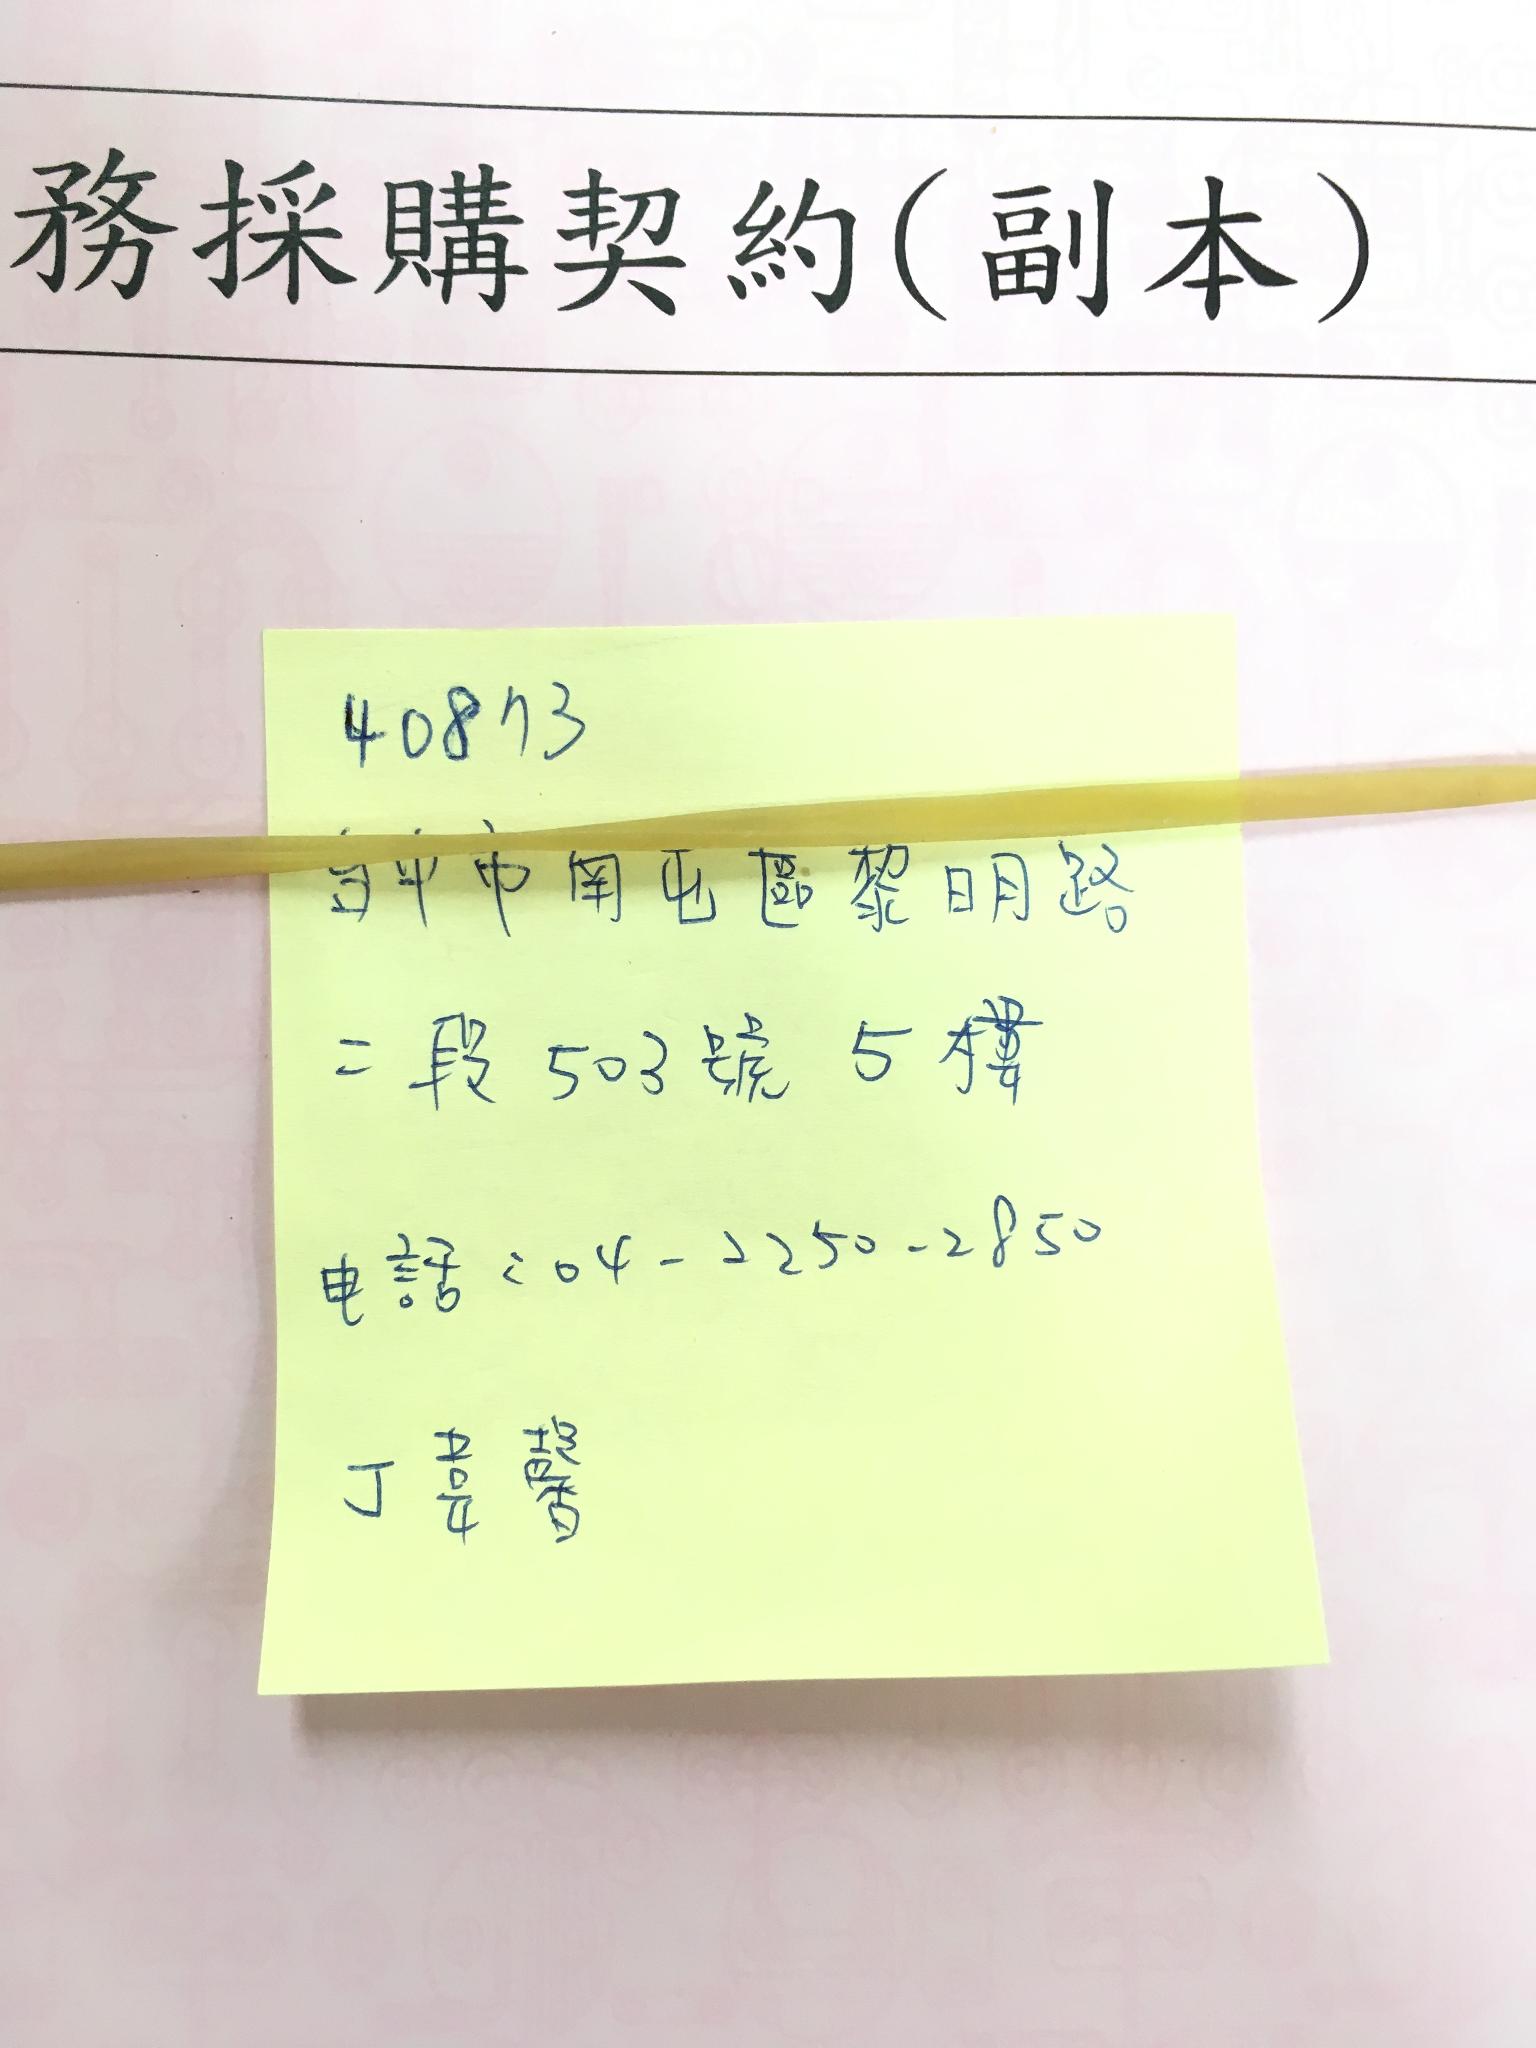 務採購契約(副本)
40873
台中市南屯區黎明路
二段503號5樓
電話:04-2250-2850
丁